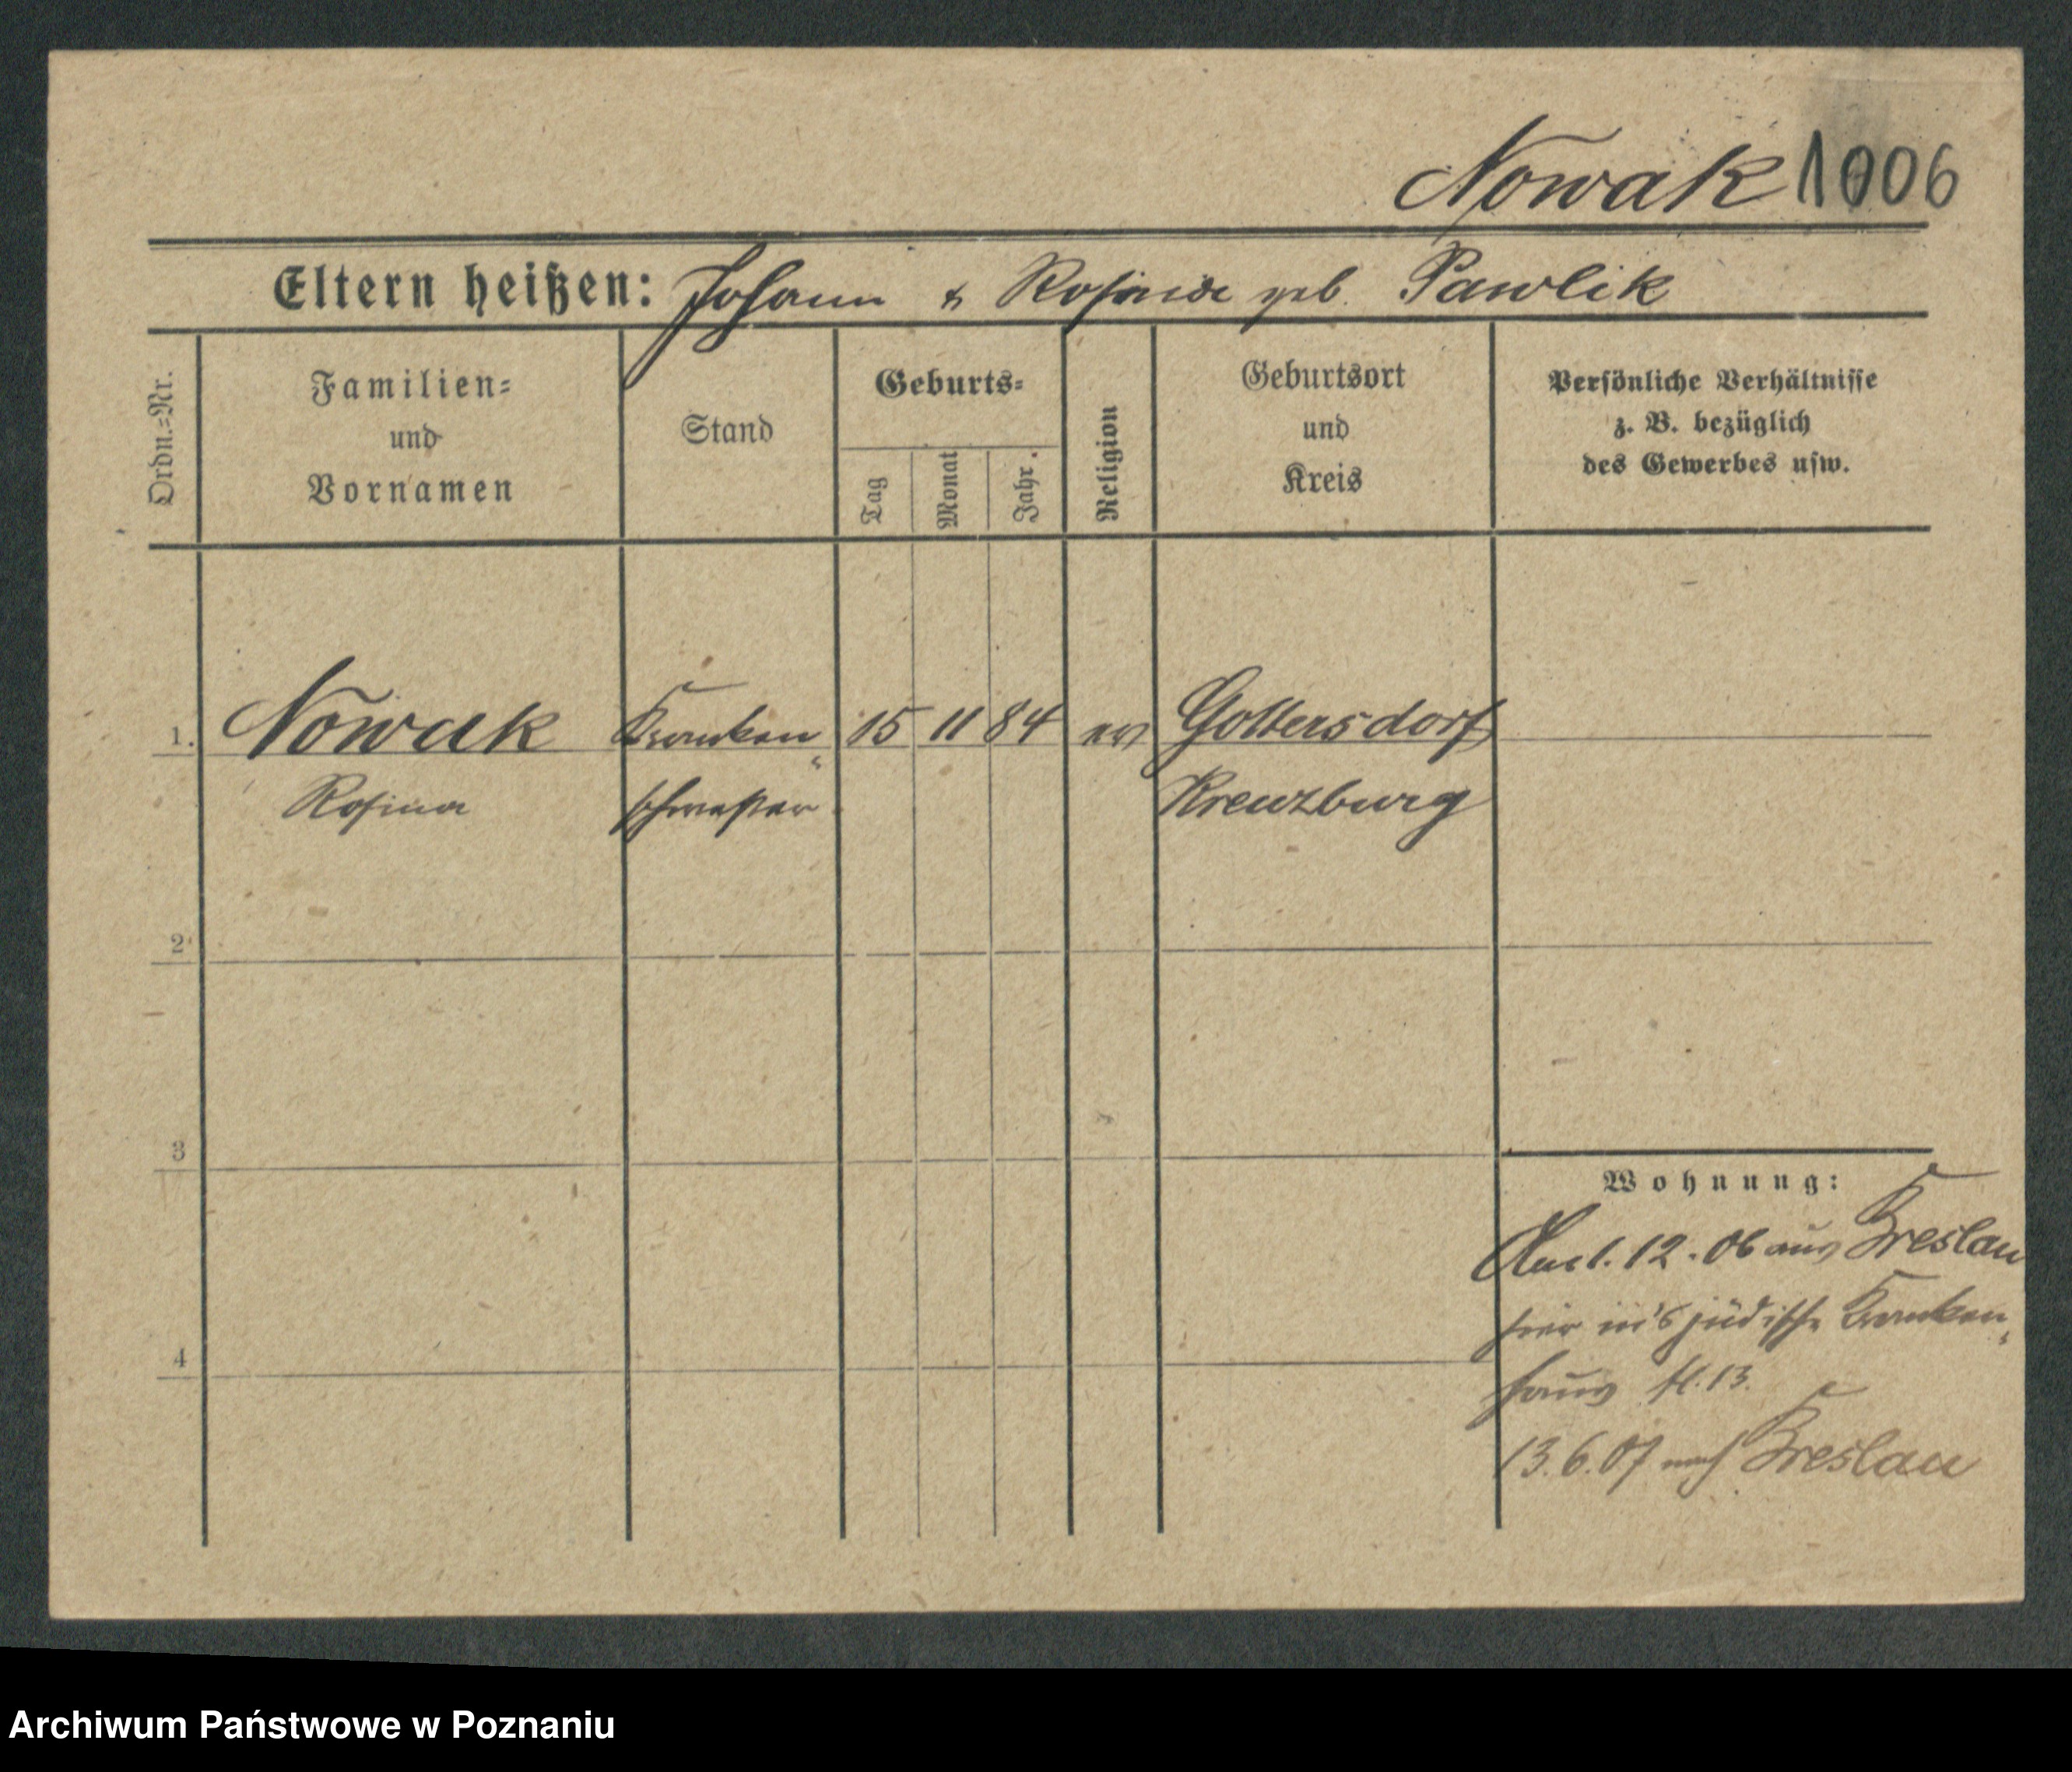 Nowak 1006
Eltern heißen: Johann & Rosina geb. Pawlik
Ordn.=Nr.
Familien=
und
Vornamen
Stand
Geburts=
Tag
Monat
Jahr.
Religion
Geburtsort
und
Kreis
Persönliche Verhältnisse
z. B. bezüglich
des Gewerbes usw.
1. Nowak Kranken= 15 11 84 ev Goltersdorf
Rosina schwester Kreuzburg
2
3
4
Wohnung:
1.12.06 aus Breslau
hier in's jüdische Kranken=
haus 13.
13.6.07 nach Breslau
Archiwum Państwowe w Poznaniu